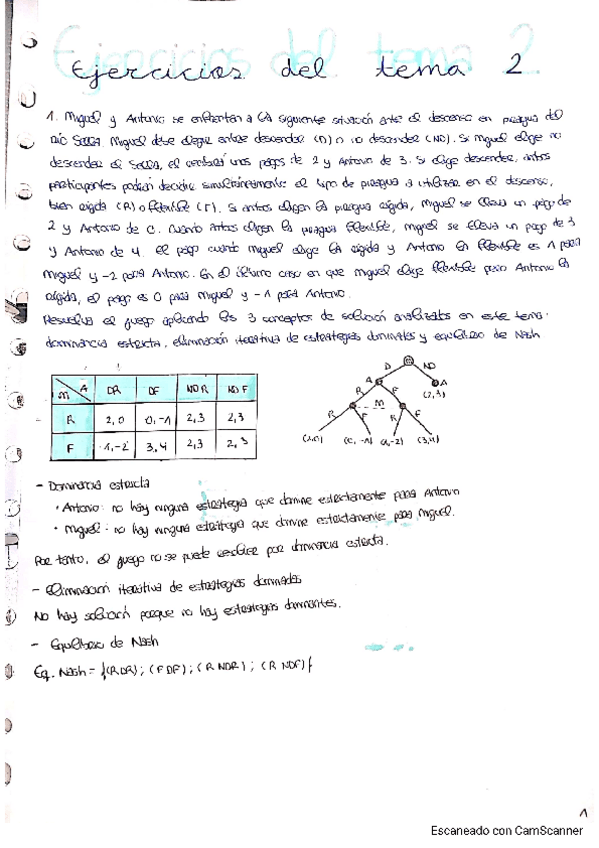 Ejercicios del tema 2
1. Miguel y Antonio se enfrentan a la siguiente situación ante el descenso en piragua del
río Sella. Miguel debe elegir entre descender (D) o no descender (ND). Si Miguel elige no
descender el Sella, él recibirá unos pagos de 2 y Antonio de 3. Si elige descender, ambos
participantes podrán decidir simultáneamente el tipo de piragua a utilizar en el descenso,
bien rígida (R) o flexible (F). Si ambos eligen la piragua rígida, Miguel se lleva un pago de
2 y Antonio de 0. Cuando ambos eligen la piragua flexible, Miguel se lleva un pago de 3
y Antonio de 4. El pago cuando Miguel elige la rígida y Antonio la flexible es 1 para
Miguel y -2 para Antonio. En el último caso en que Miguel elige flexible pero Antonio la
rígida, el pago es 0 para Miguel y -1 para Antonio.
Resuelva el juego aplicando los 3 conceptos de solución analizados en este tema:
dominancia estricta, eliminación iterativa de estrategias dominadas y equilibrio de Nash
M A DR DF NDR NDF
R 2,0 0,-1 2,3 2,3
F 1,-2 3,4 2,3 2,3
M
D ND
A A
R F (2,3)
M
R F R F
(2,0) (0,-1) (1,-2) (3,4)
- Dominancia estricta
· Antonio: no hay ninguna estrategia que domine estrictamente para Antonio
· Miguel: no hay ninguna estrategia que domine estrictamente para Miguel.
Por tanto, el juego no se puede resolver por dominancia estricta.
- Eliminación iterativa de estrategias dominadas
No hay solución porque no hay estrategias dominantes.
- Equilibrio de Nash
Eq. Nash = {(R DR); (F DF); (R NDR); (R NDF)}
1
Escaneado con CamScanner